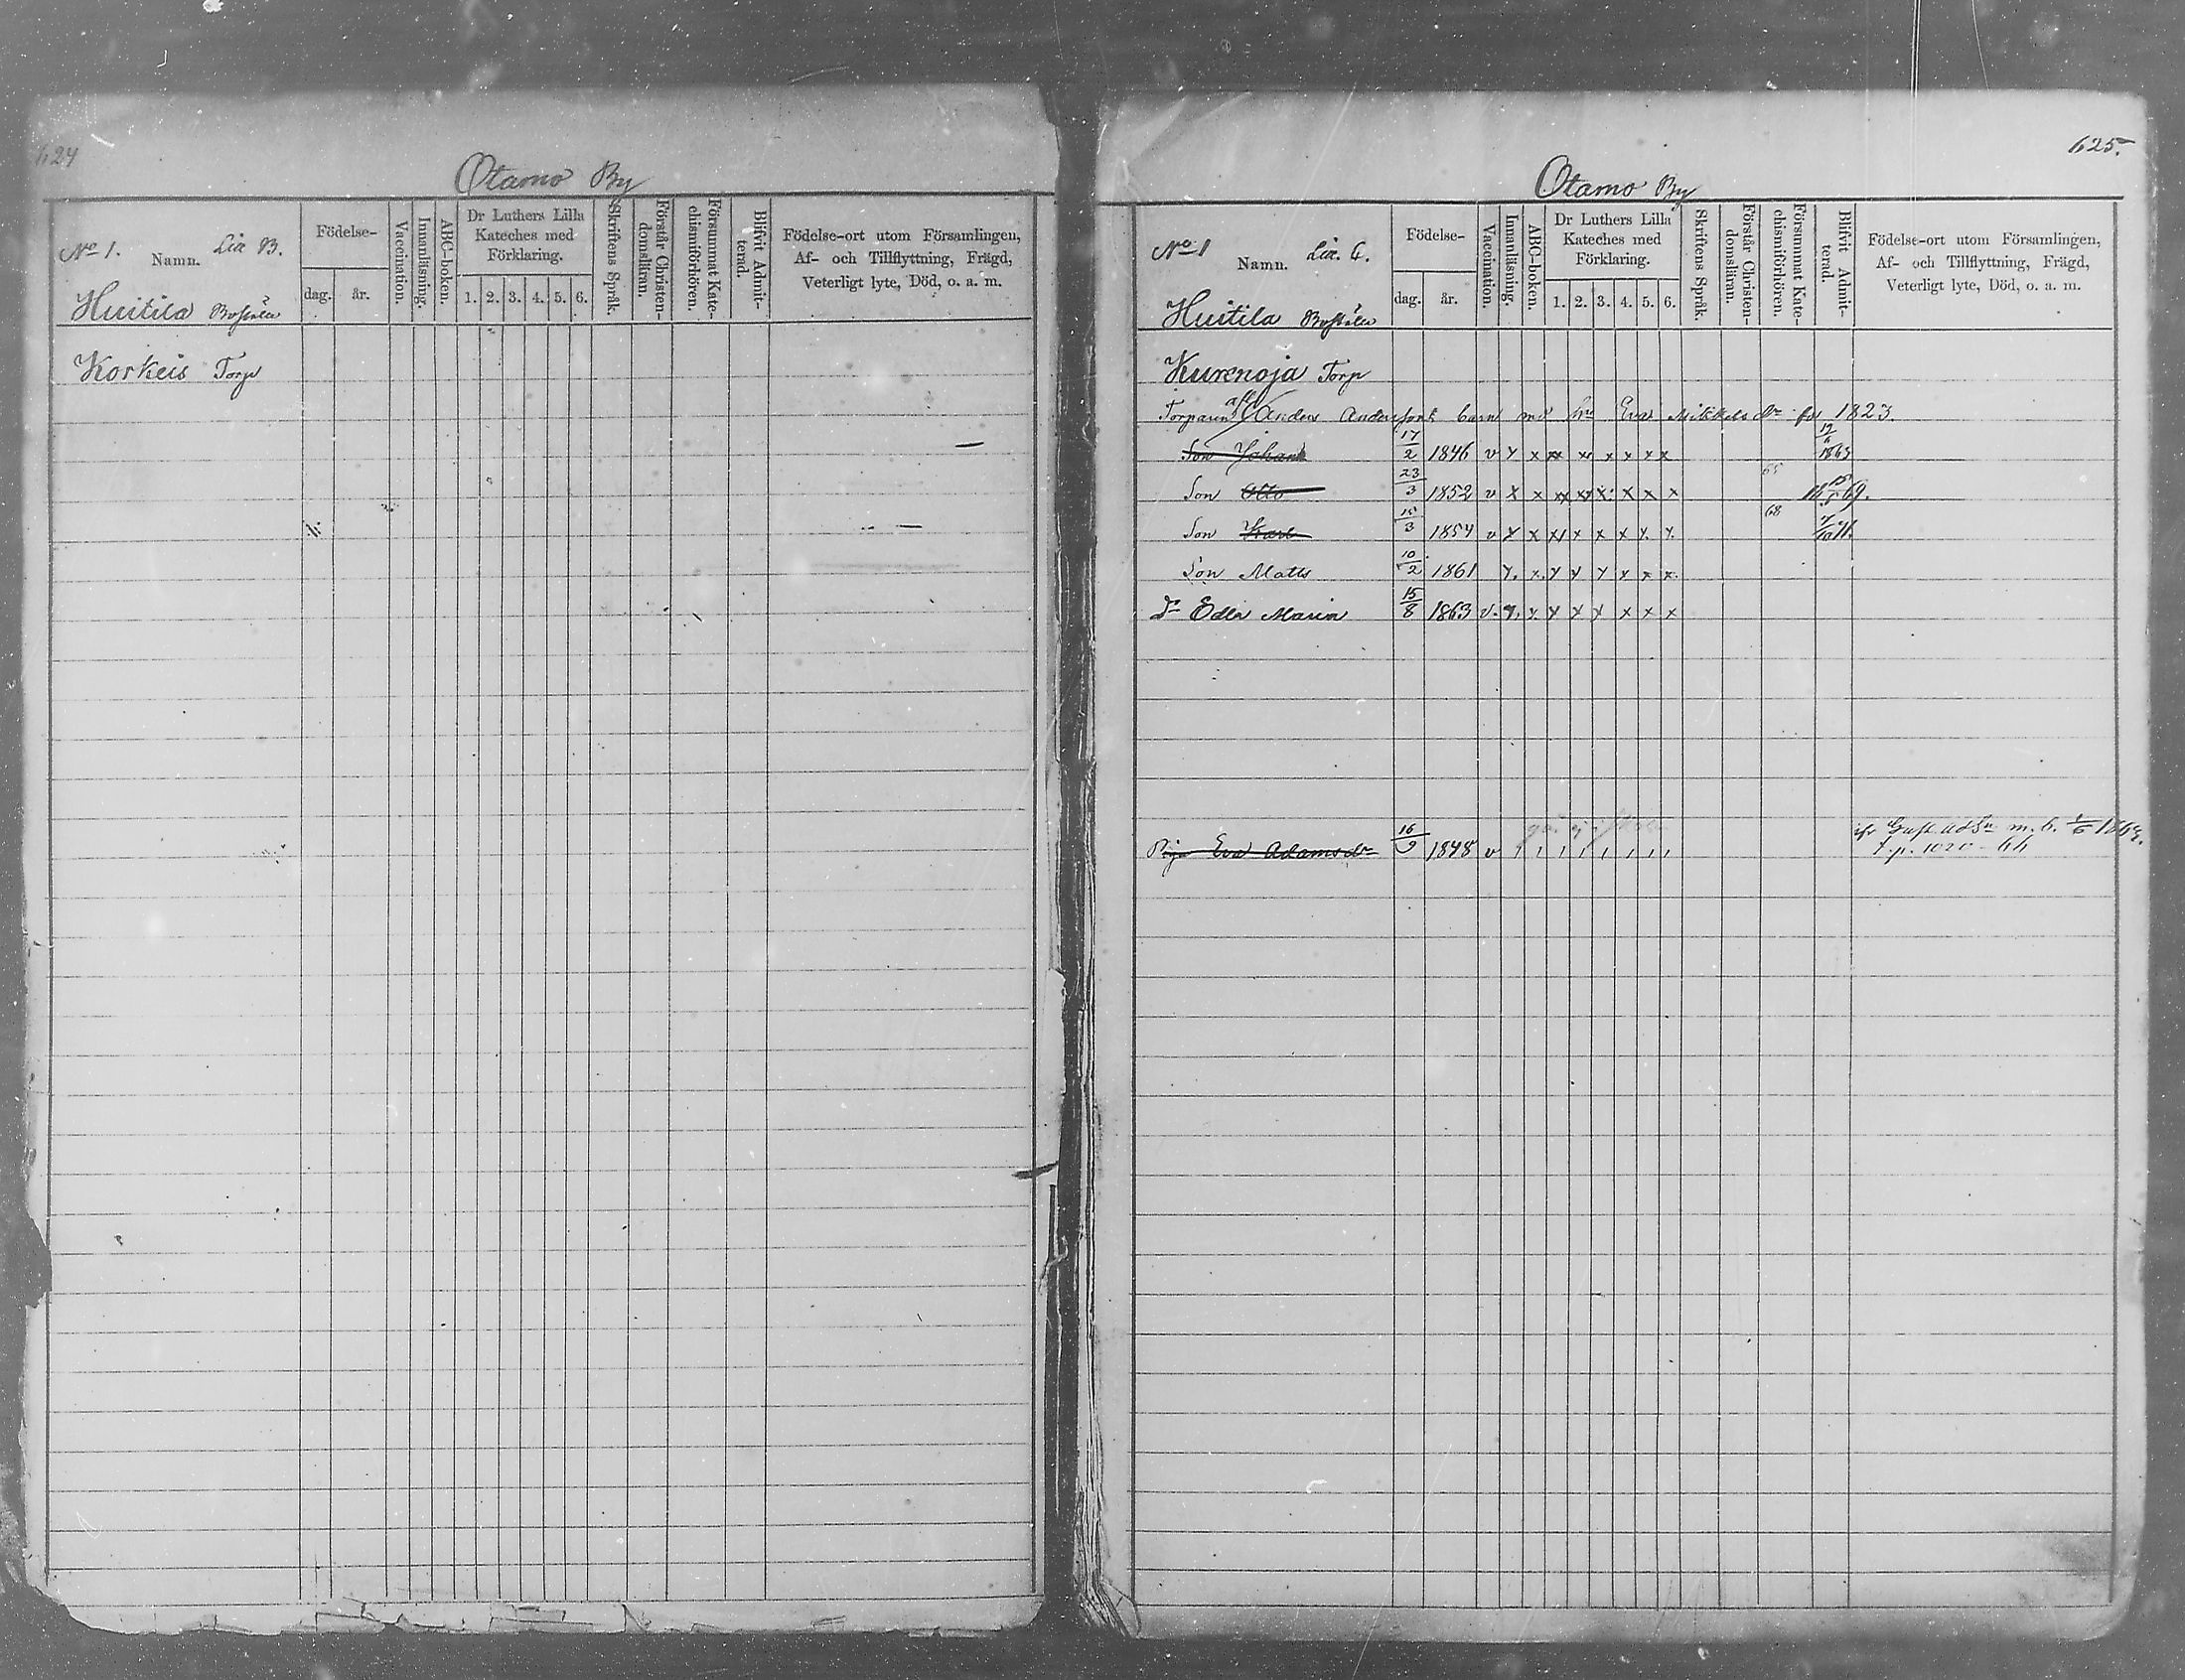 624
Otamo By
No 1. Namn. Lia B.
Huitila Boställe
Födelse-
dag. år.
Vaccination.
Innanläsning.
ABC-boken.
Dr Luthers Lilla
Kateches med
Förklaring.
1. 2. 3. 4. 5. 6.
Skriftens Språk.
Förstår Christen-
domsläran.
Försummat Kate-
chismiförhören.
Blifvit Admit-
terad.
Födelse-ort utom Församlingen,
Af- och Tillflyttning, Frägd,
Veterligt lyte, Död, o. a. m.
Korkeis Torp
625.
Otamo By
No 1 Namn. Lia. C.
Huitila Boställe
Födelse-
dag. år.
Vaccination.
Innanläsning.
ABC-boken.
Dr Luthers Lilla
Kateches med
Förklaring.
1. 2. 3. 4. 5. 6.
Skriftens Språk.
Förstår Christen-
domsläran.
Försummat Kate-
chismiförhören.
Blifvit Admit-
terad.
Födelse-ort utom Församlingen,
Af- och Tillflyttning, Frägd,
Veterligt lyte, Död, o. a. m.
Kurenoja Torp
Anders barn Eva 1823.
Son Johan 17/2 1846 v x x xx x x x x x 1863
Son Otto 23/3 1852 v x x xx xx x x x x 65 69.
Son Karl 15/3 1854 v x x xx x x x x x 68
Son Matts 10/2 1861 x. x. x x x x x x
Dr Edla Maria 15/8 1863 v. x. x. x x x x x x
Piga Eva Adamsdr 16/9 1848 v m. b.
t. p. 1020